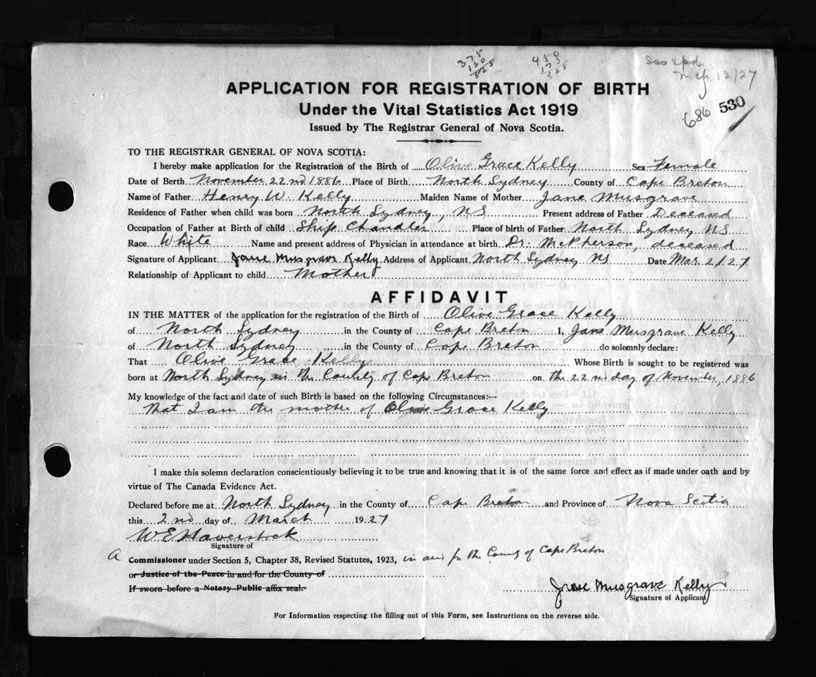 375 450
130 173
225 328
12/27
APPLICATION FOR REGISTRATION OF BIRTH
686 530
Under the Vital Statistics Act 1919
Issued by The Registrar General of Nova Scotia.
TO THE REGISTRAR GENERAL OF NOVA SCOTIA:
I hereby make application for the Registration of the Birth of Olive Grace Kelly Sex Female
Date of Berth November 22nd 1886 Place of Birth North Sydney County of Cape Breton
Name of Father Henry W. Kelly Maiden Name of Mother Jane Musgrave
Residence of Father when child was born North Sydney, NS Present address of Father Deceased
Occupation of Father at Birth of child Ship Chandler Place of birth of Father North Sydney NS
Race White Name and present address of Physician in attendance at birth Dr. McPherson, deceased
Signature of Applicant Jane Musgrave Kelly Address of Applicant North Sydney NS Date Mar 2/27
Relationship of Applicant to child Mother
AFFIDAVIT
IN THE MATTER of the application for the registration of the Birth of Olive Grace Kelly
of North Sydney in the County of Cape Breton I, Jane Musgrave Kelly
of North Sydney in the County of Cape Breton do solemnly declare:
That Olive Grace Kelly Whose Birth is sought to be registered was
born at North Sydney in the County of Cape Breton on the 22nd day of November, 1886
My knowledge of the fact and date of such Birth is based on the following Circumstances:—
That I am the mother of Olive Grace Kelly
I make this solemn declaration conscientiously believing it to be true and knowing that it is of the same force and effect as if made under oath and by
virtue of The Canada Evidence Act.
Declared before me at North Sydney in the County of Cape Breton and Province of Nova Scotia
this 2nd day of March 1927
W E Haverstock
Signature of
A Commissioner under Section 5, Chapter 38, Revised Statutes, 1923, in and for the County of Cape Breton
or Justice of the Peace in and for the County of
If sworn before a Notary Public affix seal.
Jane Musgrave Kelly
Signature of Applicant
For Information respecting the filling out of this Form, see Instructions on the reverse side.